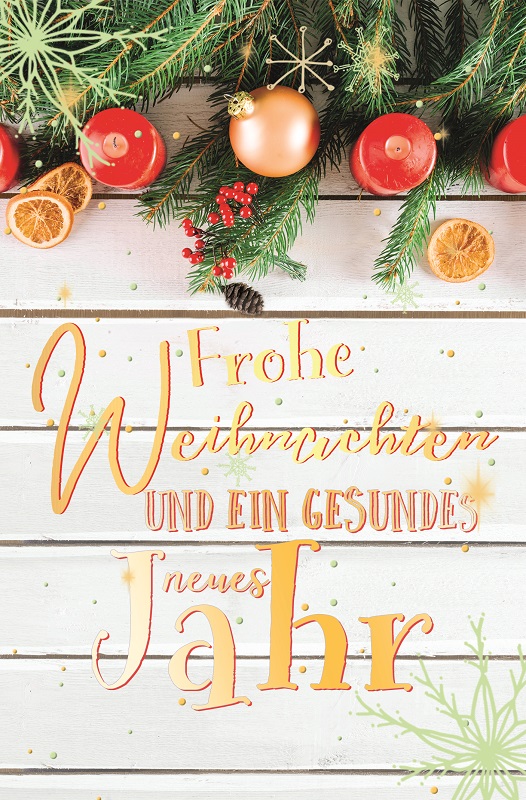 Frohe
Weihnachten
UND EIN GESUNDES
neues
Jahr